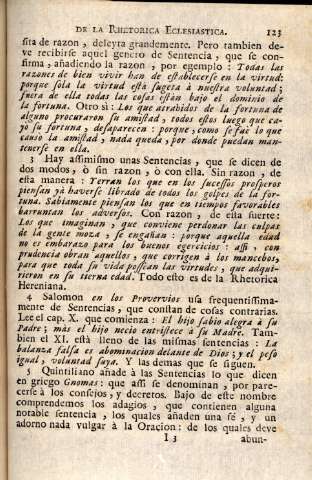 DE LA RHETORICA ECLESIASTICA. 123
sita de razon, deleyta grandemente. Pero tambien de-
ve recibirse aquel genero de Sentencia, que se con-
firma, añadiendo la razon, por egemplo: Todas las
razones de bien vivir han de establecerse en la virtud:
porque sola la virtud está sugeta à nuestra voluntad;
fuera de ella todas las cosas están bajo el dominio de
la fortuna. Otro sì: Los que atrabidos de la fortuna de
alguno procuraron su amistad, todos estos luego que ca-
yó su fortuna, desaparecen: porque, como se fue lo que
causó la amistad, nada queda, por donde puedan man-
tenerse en ella.
3 Hay assimismo unas Sentencias, que se dicen de
dos modos, ò sin razon, ò con ella. Sin razon, de
esta manera: Yerran los que en los sucessos prosperos
piensan yà haverse librado de todos los golpes de la for-
tuna. Sabiamente piensan los que en tiempos favorables
barruntan los adversos. Con razon, de esta suerte:
Los que imaginan, que conviene perdonar las culpas
de la gente moza, se engañan: porque aquella edad
no es embarazo para los buenos egercicios: assi, con
prudencia obran aquellos, que corrigen à los mancebos,
para que toda su vida possean las virtudes, que adqui-
rieron en su tierna edad. Todo esto es de la Rhetorica
Hereniana.
4 Salomon en los Provervios usa frequentissima-
mente de Sentencias, que constan de cosas contrarias.
Lee el cap. X. que comienza: El hijo sabio alegra à su
Padre; màs el hijo necio entristece à su Madre. Tam-
bien el XI. està lleno de las mismas sentencias: La
balanza falsa es abominacion delante de Dios; y el peso
igual, voluntad suya. Y las demas que se siguen.
5 Quintiliano añade à las Sentencias lo que dicen
en griego Gnomas: que assi se denominan, por pare-
cerse à los consejos, y decretos. Bajo de este nombre
comprendemos los adagios, que contienen alguna
notable sentencia, los quales añaden una sé, y un
adorno nada vulgar à la Oracion: de los quales deve
I 3 abun-